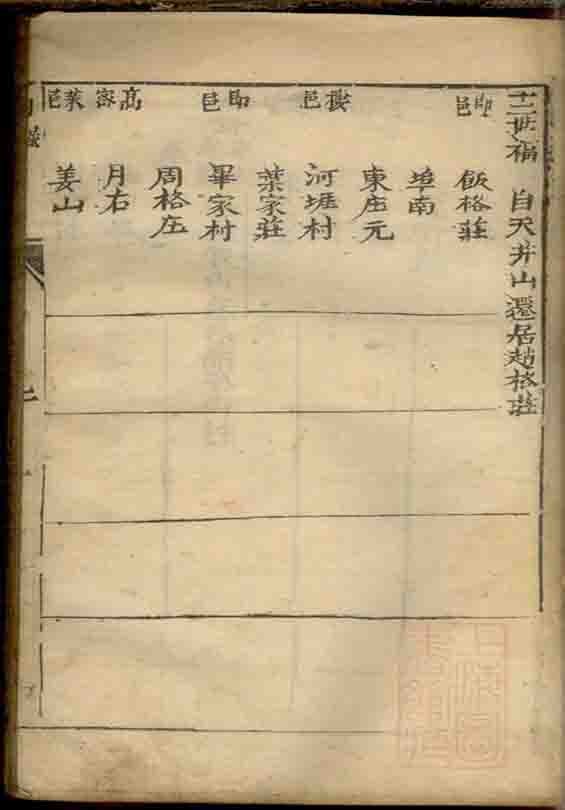 十二世福 自天井山遷居趙格莊
即邑
飯格莊
埠南
東庄元
邑
河堐村
葉家莊
即邑
畢家村
周格庄
高密
月右
萊邑
姜山